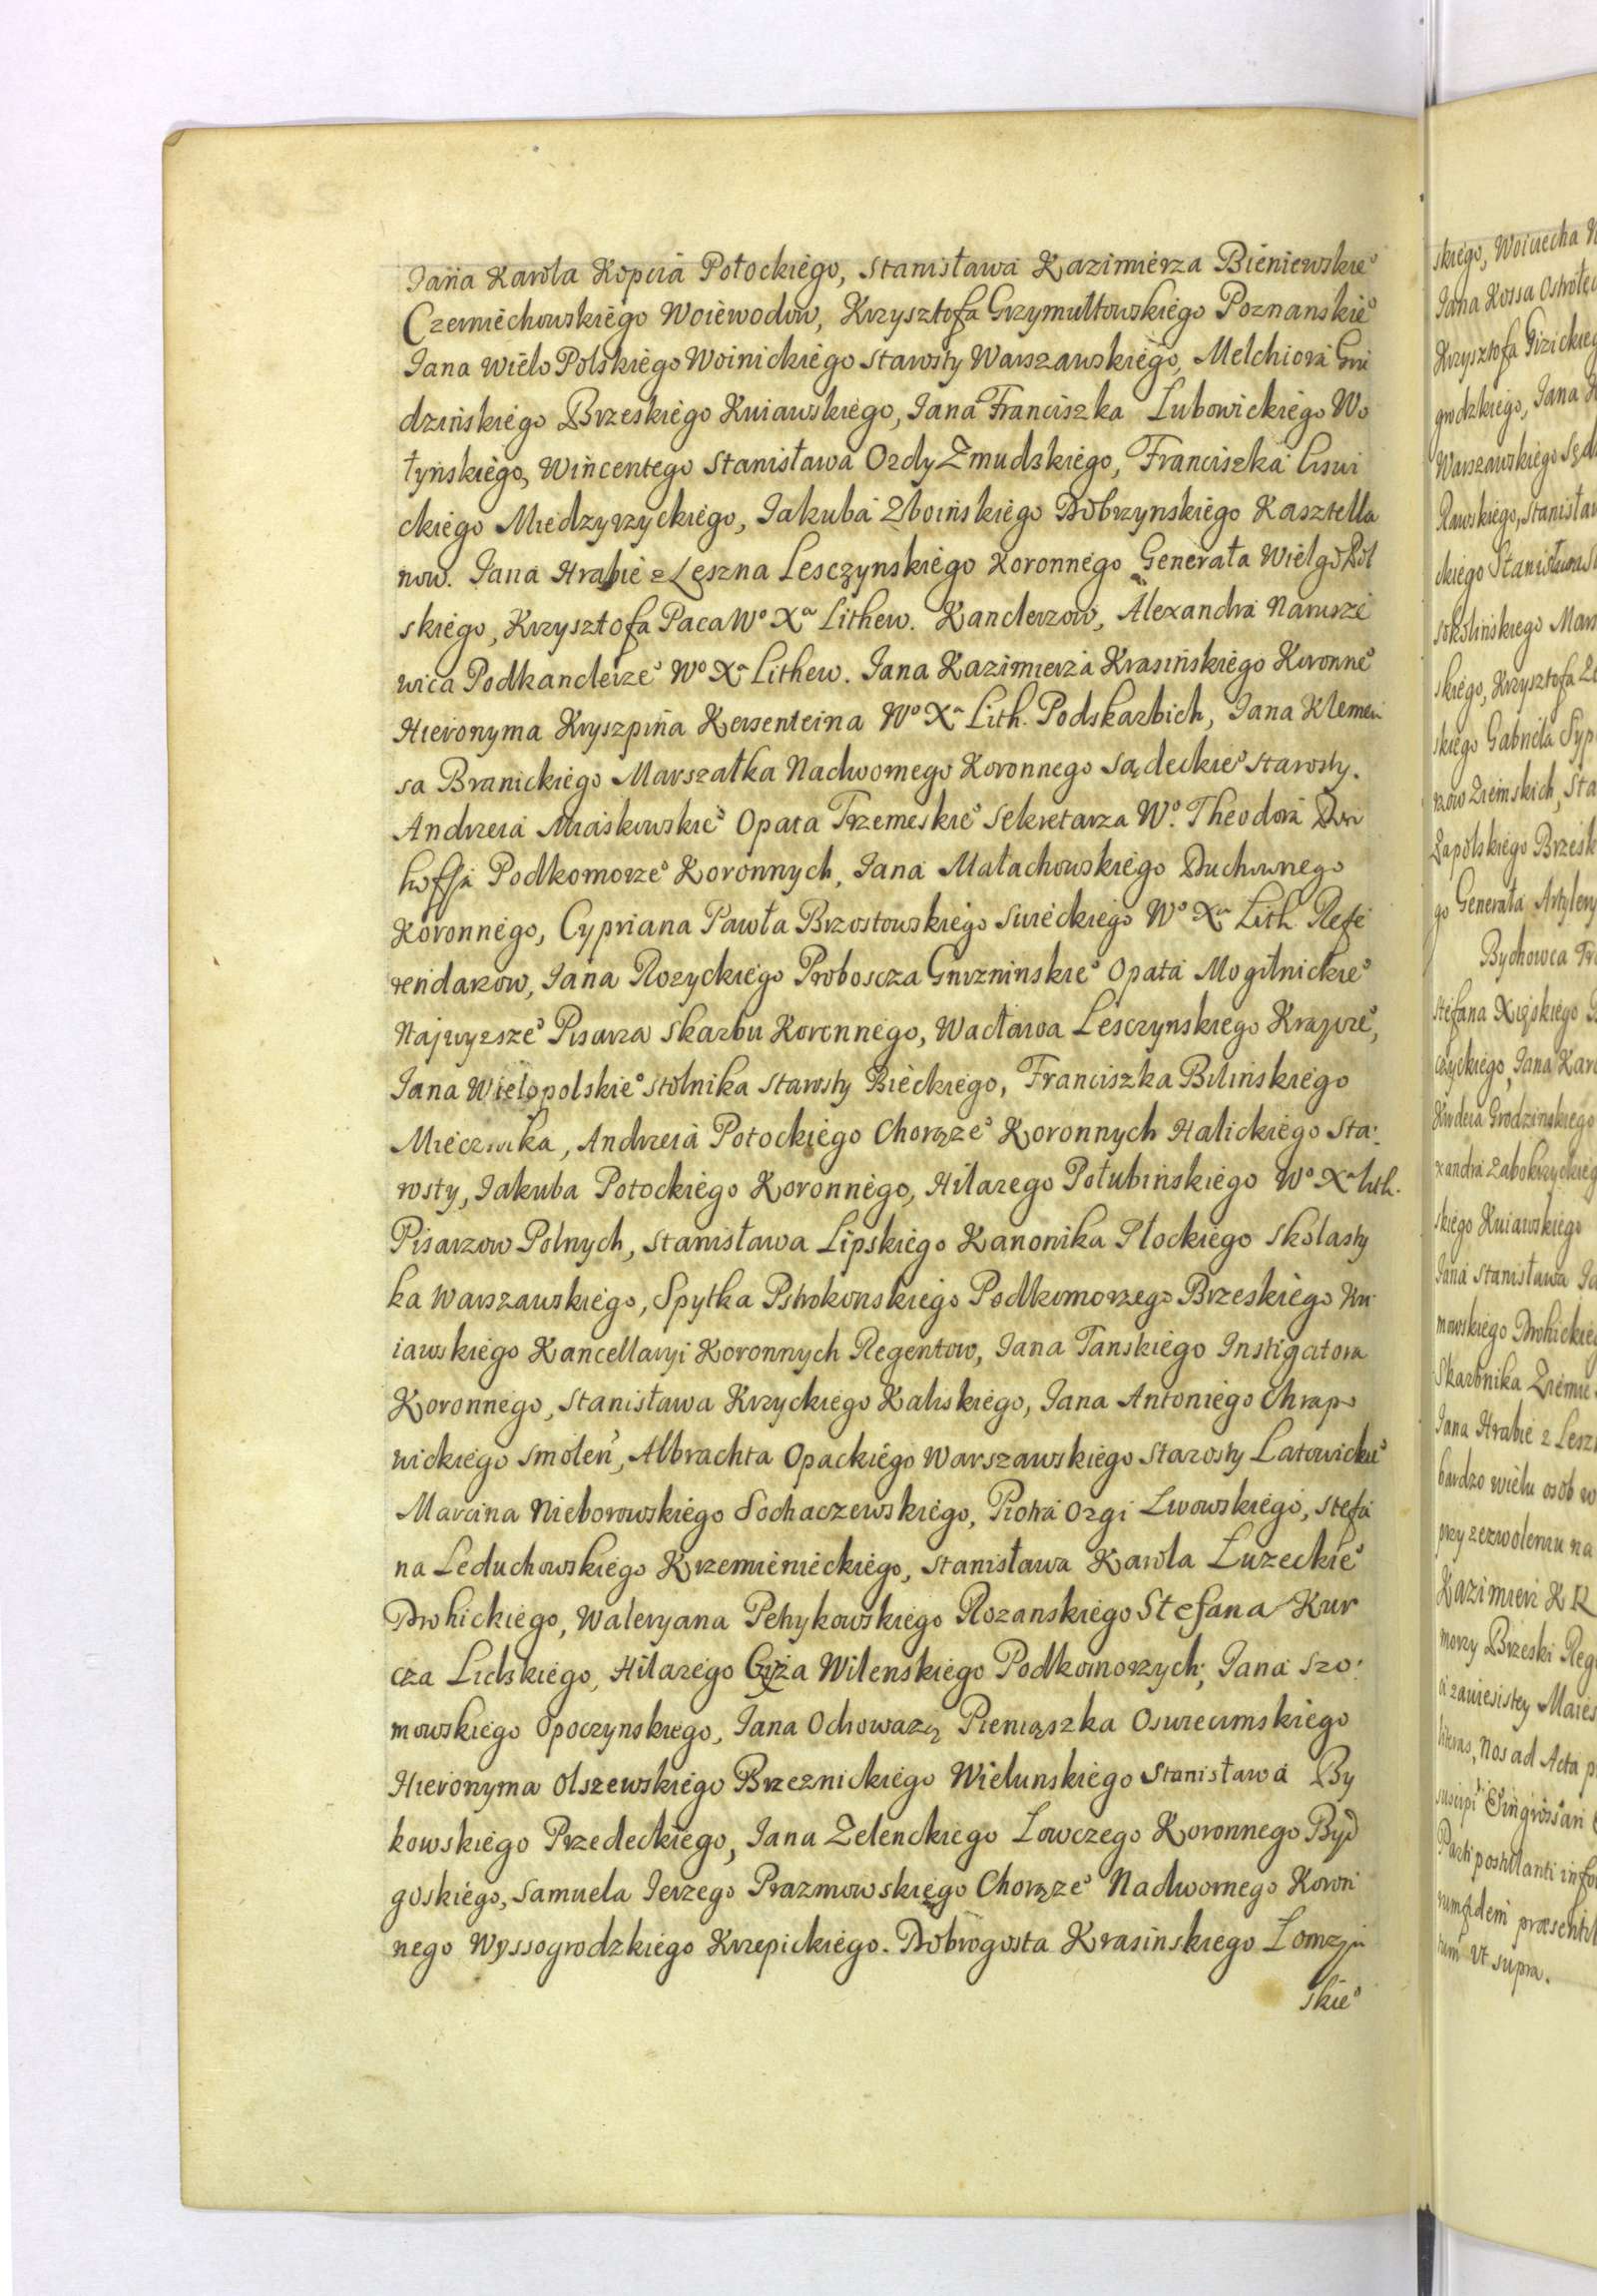 Jana Karola Kopcia Połockiego, Stanisława Kazimierza Bieniewskieº
Czerniechowskiego Woiewodow, Krzysztofa Grzymułtowskiego Poznanskieº
Jana Wielo Polskiego Woinickiego Starosty Warszawskiego, Melchiora Gru
dzińskiego Brzeskiego Kuiawskiego, Jana Franciszka Lubowickiego Wo
łyńskiego, Wincentego Stanisława Ordy Zmudzkiego, Franciszka
ckiego Miedzyrzyckiego, Jakuba Zboińskiego Dobrzynskiego Kasztella
now. Jana Hrabie z Leszna Lesczynskiego Koronnego Generała Wielgo Pol
skiego, Krzysztofa Paca Wº Xª Lithew. Kanclerzow, Alexandra Narusze
wica Podkanclerzeº Wº Xª Lithew. Jana Kazimierza Krasińskiego Koronneº
Hieronyma Kryszpina Kersenteina Wº Xª Lith. Podskarbich, Jana Klemen
sa Branickiego Marszałka Nadwornego Koronnego Sądeckieº Starosty.
Andrzeia Miaskowskieº Opata Trzemeskieº Sekretarza Wº. Theodora Den
hoffa Podkomorzeº Koronnych, Jana Małachowskiego Duchownego
Koronnego, Cypriana Pawła Brzostowskiego Suieckiego Wº Xª Lith Refe
rendarzow, Jana Rozyckiego Proboscza Gnizninskieº Opata Mogilnickieº
Najwyzszeº Pisarza Skarbu Koronnego, Wacława Lesczynskiego Krajczeº,
Jana Wielopolskieº Stolnika Starosty Bieckiego, Franciszka Bilińskiego
Miecznika, Andrzeia Potockiego Chorązeº Koronnych Halickiego Sta:
rosty, Jakuba Potockiego Koronnego, Hilarego Połubińskiego Wº Xª Lith.
Pisarzow Polnych, Stanisława Lipskiego Kanonika Płockiego Skolasty
ka Warszawskiego, Spytka Pstrokonskiego Podkomorzego Brzeskiego Ku
iawskiego Kancellaryi Koronnych Regentow, Jana Tanskiego Instigatora
Koronnego, Stanisława Krzyckiego Kaliskiego, Jana Antoniego Chrapo
wickiego Smolen, Albrachta Opackiego Warszawskiego Starosty Latowickieº
Marcina Nieborowskiego Sochaczewskiego, Piotra Ozgi Lwowskiego, Stefa
na Leduchowskiego Krzemienieckiego, Stanisława Karola Łuzeckieº
Drohickiego, Waleryana Petrykowskiego Rozanskiego Stefana Kur
cza Lidzkiego, Hilarego Giża Wilenskiego Podkomorzych; Jana Szo:
mowskiego Opoczynskiego, Jana Ochowazą Pieniąszka Oswiecimskiego
Hieronyma Olszewskiego Brzeznickiego Wielunskiego Stanisława By
kowskiego Przedeckiego, Jana Zelenckiego Lowczego Koronnego Byd
goskiego, Samuela Jerzego Prazmowskiego Chorązeº Nadwornego Koron
nego Wyssogrodzkiego Krzepickiego. Dobrogosta Krasinskiego Lomzyn
skieº
skiego, Woiciecha
Jana Kossa Ostrołęc
Krzysztofa Gizickieg
grodzkiego, Jana
Warszawskiego Sęd
Rawskiego, Stanisław
ckiego Stanisława
Sokolińskiego Mars
skiego, Krzysztofa
skiego Gabriela Syp
rzow Ziemskich, Sta
Zapolskiego Brzesk
go Generała Artylery
Bychowca
Stefana Xiąskiego
czyckiego, Jana Karo
Andrzeia Grodzinskiego
xandra Zabokrzyckieg
skiego Kuiawskiego
Jana Stanisława
mowskiego Drohickieg
Skarbnika Ziemie
Jana Hrabie z Lesz
bardzo wielu osob w
przy zezwoleniu na
Kazimierz K R
morzy Brzeski Reg
zawiesistey Maies
literas, Nos ad Acta p
suscipi Et ingrossari
Parti postulanti
rum fidem præsentib
tum Vt supra.